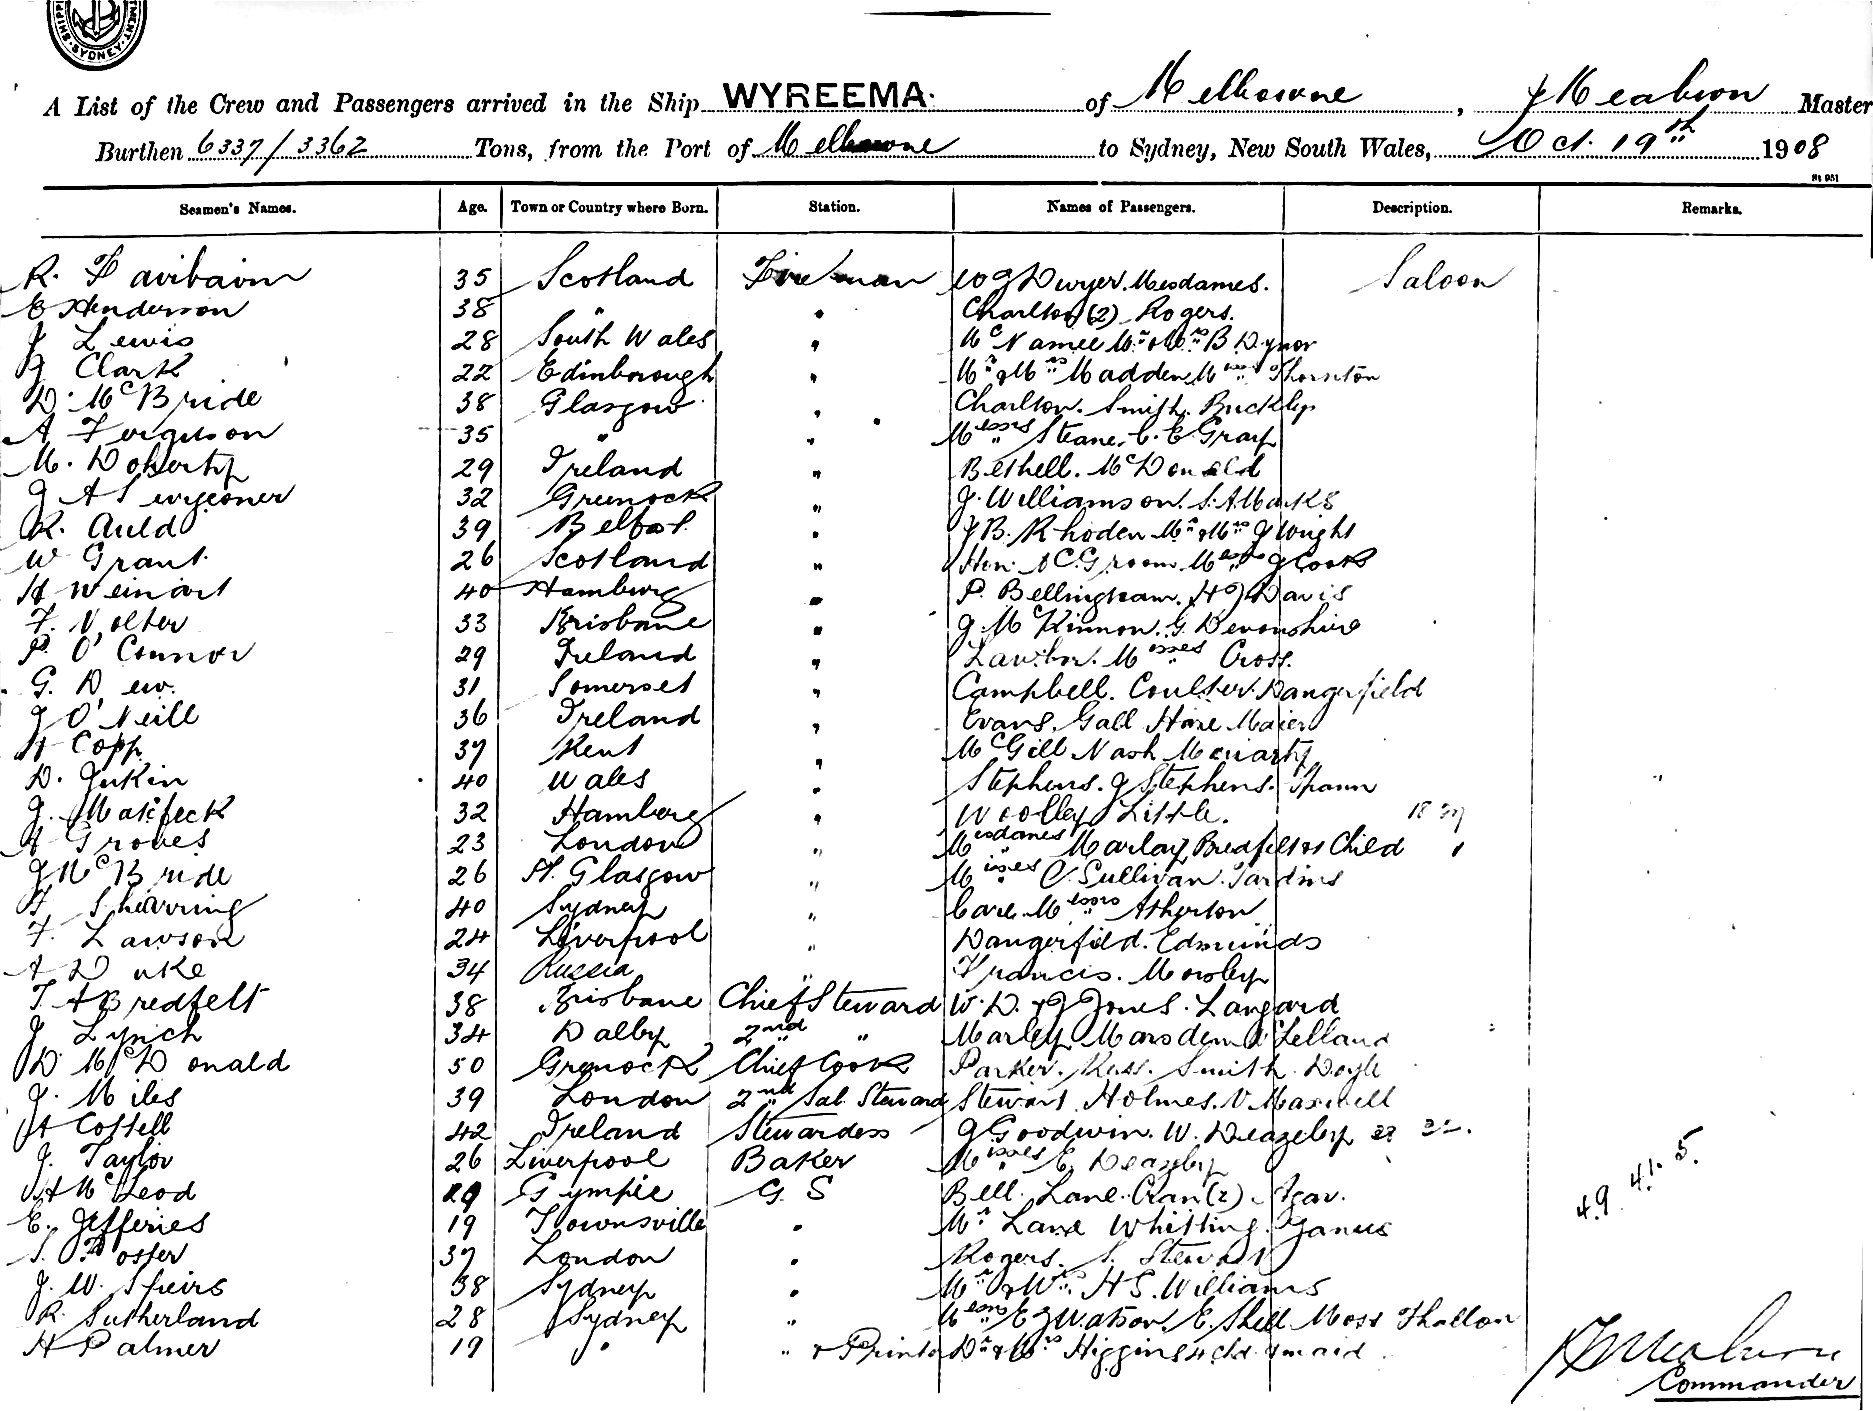 SHIPP MENT. SYDNEY.
A List of the Crew and Passengers arrived in the Ship WYREEMA. of Melbourne, Meabron Master
Burthen 6337/3362 Tons, from the Port of Melbourne to Sydney, New South Wales, Oct. 19th 1908
Seamen's Names. Age. Town or Country where Born. Station. Names of Passengers. Description. Remarks.
R. Fairbairn 35 Scotland Fireman Dwyer. Mesdames. Saloon
E Henderson 38 " " Charlton (2) Rogers.
J Lewis 28 South Wales " McNamee Mr & Mrs B Dynor
J Clark 22 Edinborough " Mr & Mrs Madden Misses Thornton
D. McBride 38 Glasgow " Charlton. Smith. Buckley
A Ferguson 35 " " Messrs Steane. C. E. Gray
M. Doherty 29 Ireland " Bethell. McDonald
J A Surgeoner 32 Greenock " J. Williamson. S. A. Marks
R. Auld 39 Belfast. " J B. Rhoden Mr & Mrs J Wright
W Grant. 26 Scotland " Hon. A C. Groom Messrs J Cook
H Weinart 40 Hamburg " P. Bellingham. H J Davis
F. Nolter 33 Brisbane " J. McKinnon. G. Devonshire
P. O'Connor 29 Ireland " Lawlor. Misses Cross.
G. Dew. 31 Somerset " Campbell. Coulter. Dangerfield
J O'Neill 36 Ireland " Evans. Gall Hone Maier
H Copp 37 Kent " McGill Nash Moriarty
D. Jukin 40 Wales " Stephens. J Stephens. Spann
J. Matefeck 32 Hamberg " Woolley Little. 18 39
A Groves 23 London " Mesdames Marlay Bredfelt & Child
J McBride 26 Pt. Glasgow " Misses O'Sullivan. Jardins
F Shearring 40 Sydney " Care. Messrs Atherton
F. Lawson 24 Liverpool " Dangerfield. Edmunds
A Duke 34 Russia " Francis. Mosley
T A Bredfelt 38 Brisbane Chief Steward W. D. & J Jones. Langard
J. Lynch 34 Dalby 2nd " Marley Marsden Lelland
D. McDonald 50 Grenock Chief Cook Parker. Russ. Smith. Doyle
J. Miles 39 London 2nd Sal. Steward Stewart. Holmes. N. Maxwell
H Cottell 42 Ireland Stewardess J Goodwin. W. Deazeley
J. Taylor 26 Liverpool Baker Misses E. Deazeley
H McLeod 29 Gympie G. S Bell. Lane. Cran (2)
E. Jefferies 19 Townsville " Mr Lane Whitting. Janus
S. Foster 37 London " Rogers. S. Stewart
J. W. Speirs 38 Sydney " Mr & Mrs H S. Williams
R. Sutherland 28 Sydney " Messrs E J Watson. E. Shell. Moss Thallon
H Palmer 19 " " & Printer Dr & Mrs Higgins 4 chd & maid.
49 41. 5.
Meabron
Commander